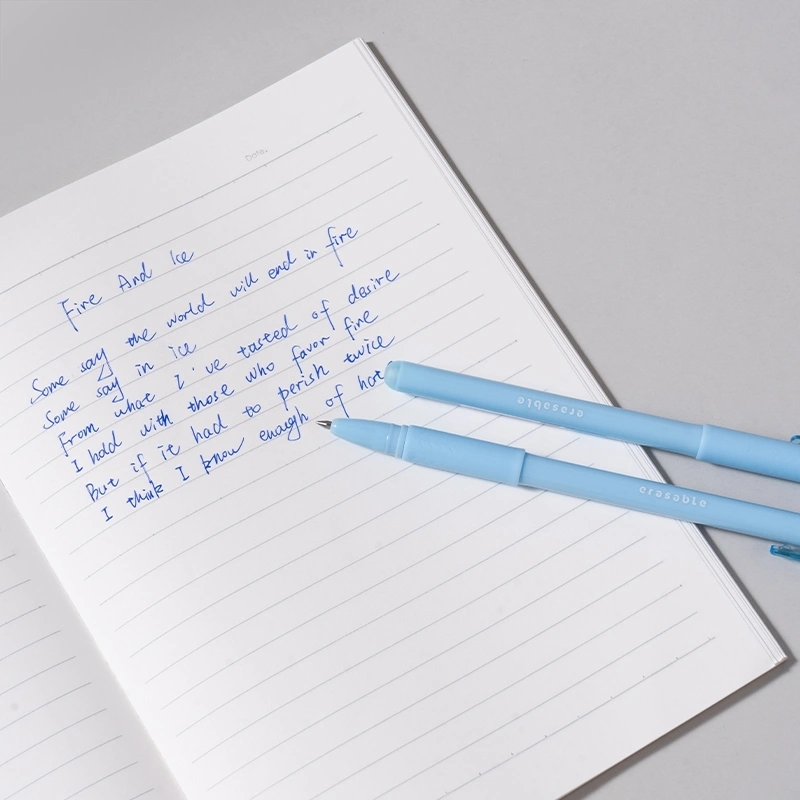 Date.
Fire And Ice
Some say the world will end in fire
Some say in ice
From what I've tasted of desire
I hold with those who favor fire
But if it had to perish twice
I think I know enough of hat
erasable
erasable